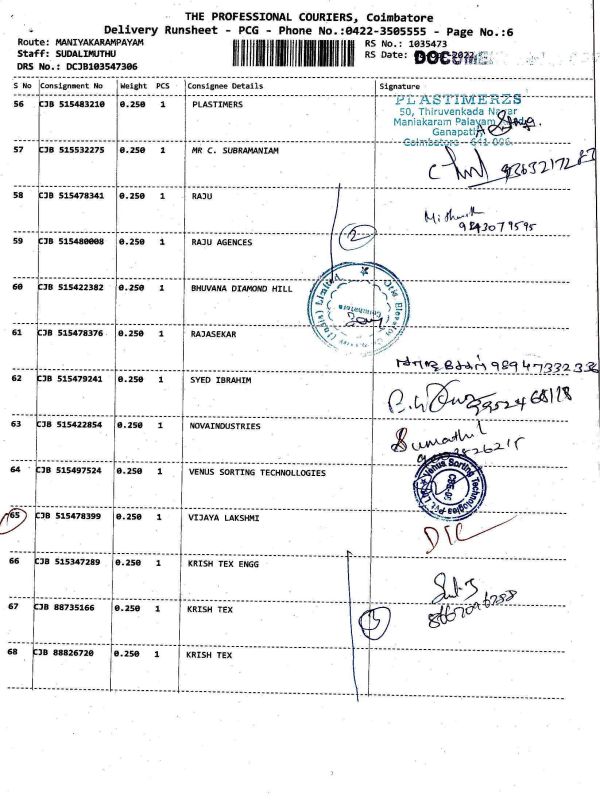 THE PROFESSIONAL COURIERS, Coimbatore
Delivery Runsheet - PCG - Phone No.:0422-3505555 - Page No.:6
Route: MANIYAKARAMPAYAM
RS No.: 1035473
Staff: SUDALIMUTHU
RS Date: 2022
DRS No.: DCJB103547306
S No Consignment No Weight PCS Consignee Details Signature
56 CJB 515483210 0.250 1 PLASTIMERS
PLASTIMERZS
50, Thiruvenkada Nagar
Maniakaram Palayam
Ganapathi
Coimbatore - 641 006.
57 CJB 515532275 0.250 1 MR C. SUBRAMANIAM
58 CJB 515478341 0.250 1 RAJU
9843079595
59 CJB 515480008 0.250 1 RAJU AGENCES
2
60 CJB 515422382 0.250 1 BHUVANA DIAMOND HILL
61 CJB 515478376 0.250 1 RAJASEKAR
62 CJB 515479241 0.250 1 SYED IBRAHIM
63 CJB 515422854 0.250 1 NOVAINDUSTRIES
Sumathi
64 CJB 515497524 0.250 1 VENUS SORTING TECHNOLLOGIES
Venus Sorting Technologies Pvt. Ltd.
65 CJB 515478399 0.250 1 VIJAYA LAKSHMI
66 CJB 515347289 0.250 1 KRISH TEX ENGG
67 CJB 88735166 0.250 1 KRISH TEX
68 CJB 88826720 0.250 1 KRISH TEX